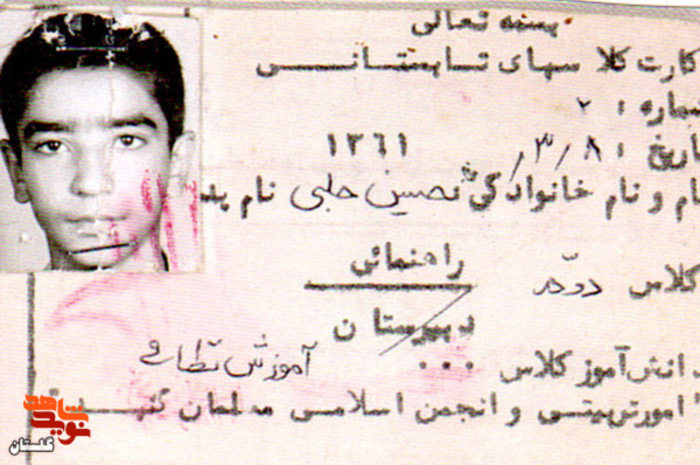 بسمه تعالی
کارت کلاسهای تابستانی
شماره : ۲
تاریخ : ۸ / ۳ / ۱۳۶۱
نام و نام خانوادگی حلبی نام پد
کلاس دوم راهنمائی
دبیرستان
دانش‌آموز کلاس ... آموزش نظامی
امورتربیتی و انجمن اسلامی معلمان گنبد
نوید شاهد
گلستان